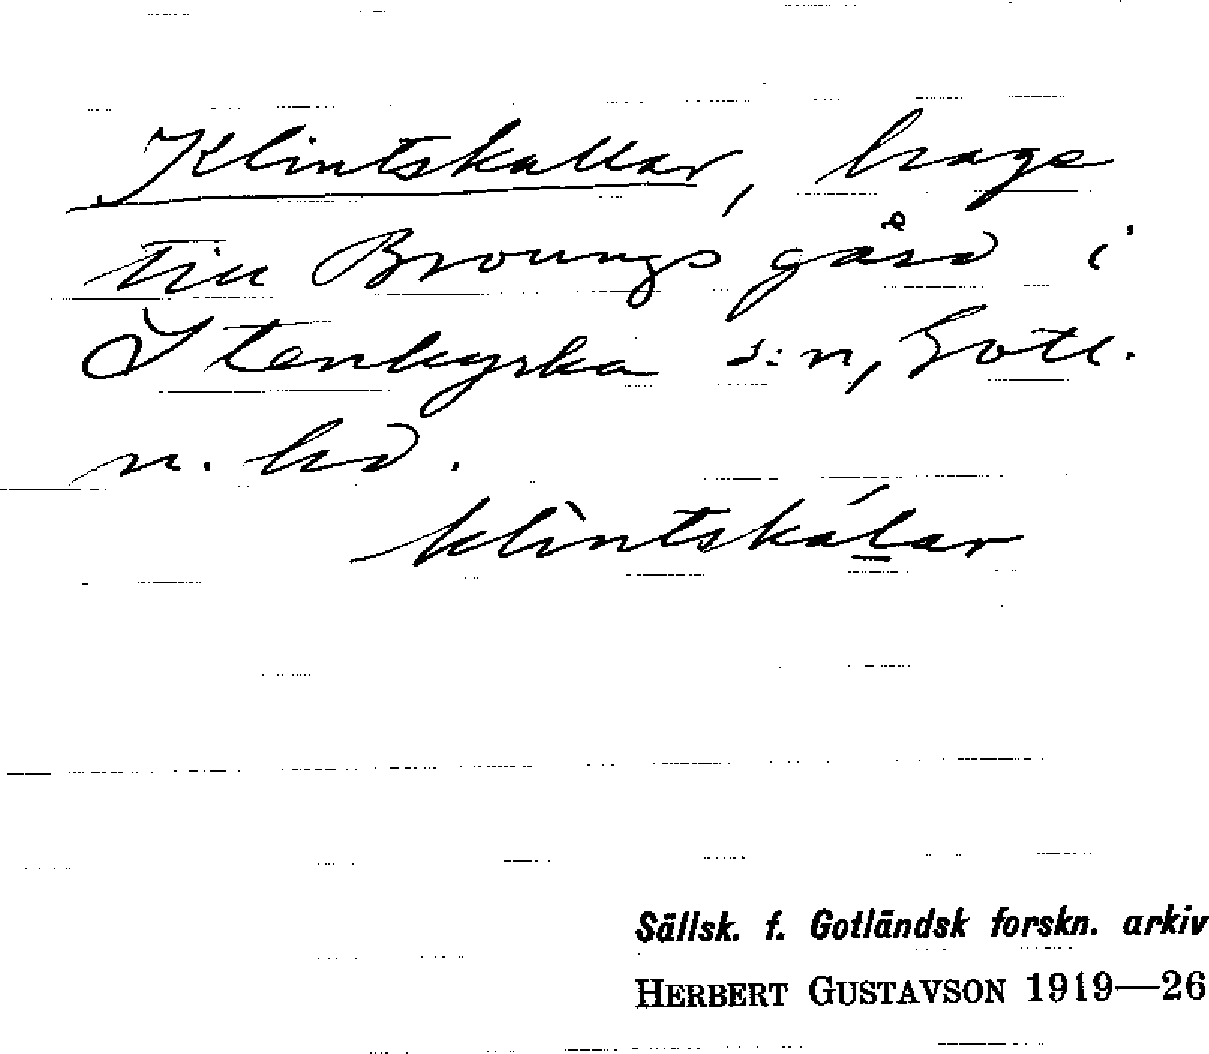 Klintskallar, hage
till Broungs gård i
Stenkyrka s:n, Gotl.
n. hd.
klìntskáḻar
Sällsk. f. Gotländsk forskn. arkiv
HERBERT GUSTAVSON 1919—26